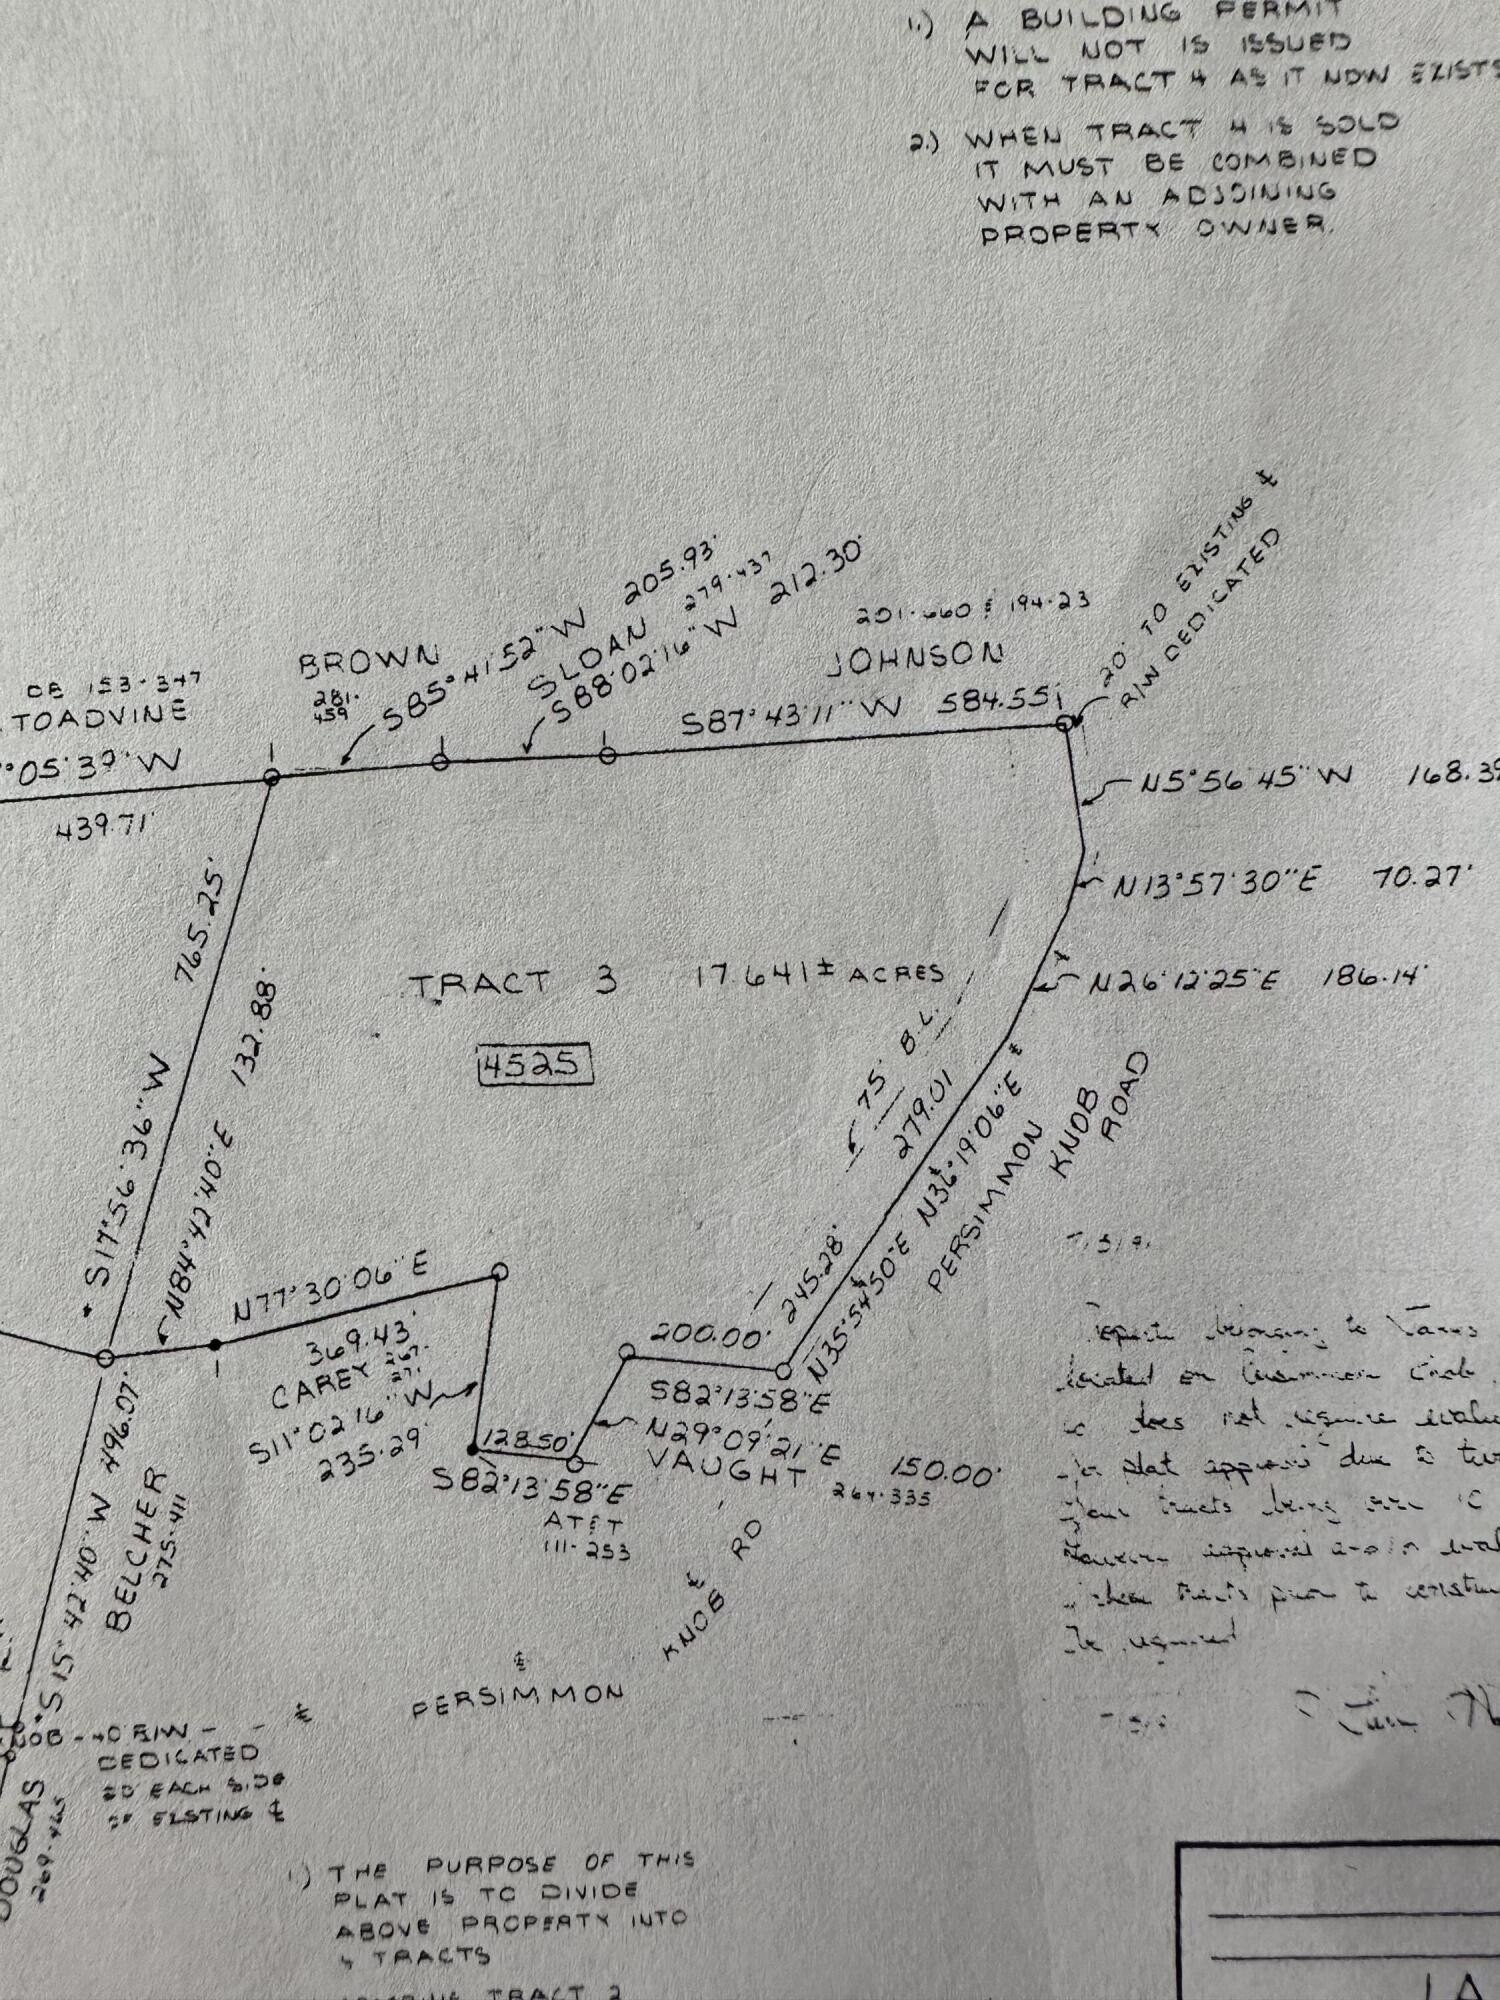 1.) A BUILDING PERMIT
WILL NOT IS ISSUED
FOR TRACT 4 AS IT NOW EXISTS
2.) WHEN TRACT 4 IS SOLD
IT MUST BE COMBINED
WITH AN ADJOINING
PROPERTY OWNER.
20' TO EXISTING ℄
R/W DEDICATED
BROWN
281.
459
S85°41'52"W 205.93'
SLOAN 279.437
S88°02'16"W 212.30'
194.23
JOHNSON
S87°43'11"W 584.55'
153.347
TOADVINE
°05'39"W
439.71'
N5°56'45"W 168.39
N13°57'30"E 70.27'
N26°12'25"E 186.14'
S17°56'36"W 765.25'
N84°42'40"E 132.88'
TRACT 3 17.641± ACRES
4525
75' B.L.
279.01
N36°19'06"E ℄
PERSIMMON
KNOB
ROAD
245.28'
N35°54'50"E
N77°30'06"E
369.43'
CAREY 267.
271.
S11°02'16"W
235.29'
200.00'
S82°13'58"E
N29°09'21"E 150.00'
VAUGHT 264.335
128.50'
S82°13'58"E
AT&T
111-253
S15°42'40"W 496.07'
BELCHER
275.411
℄ PERSIMMON ℄ KNOB ℄ RD
R/W
DEDICATED
EACH SIDE
EXSTING ℄
DOUGLAS
269.465
belonging to
located on
does not require
plat due to
tracts being over
tracts prior to
be required
1.) THE PURPOSE OF THIS
PLAT IS TO DIVIDE
ABOVE PROPERTY INTO
4 TRACTS
TRACT 2